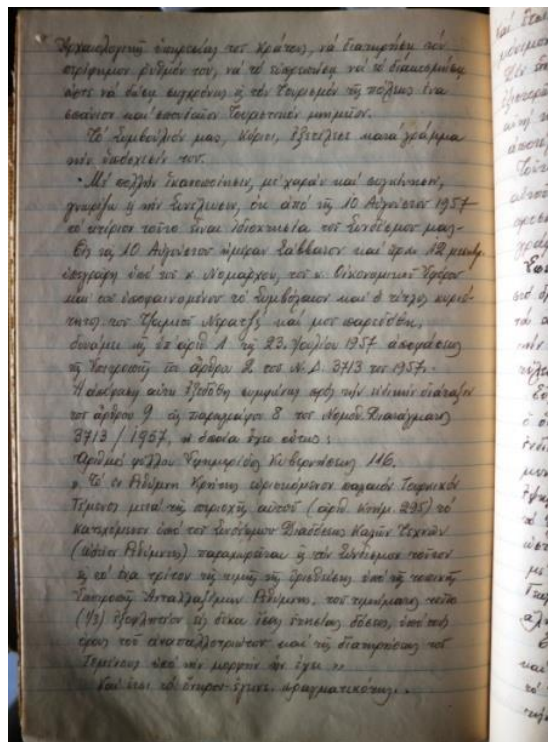 Ἀρχαιολογικῆς ὑπηρεσίας τοῦ Κράτους, νά διατηρήσῃ τόν
ρυθμόν του, νά τό εὐπρεπίσῃ νά τό διακοσμήσῃ
ὥστε νά δώσῃ συγχρόνως εἰς τόν Τουρισμόν τῆς πόλεως ἕνα
σπάνιον καί σπουδαῖον Τουριστικόν μνημεῖον.
Τό Συμβούλιόν μας, Κύριοι, ἐξετέλεσε κατά γράμμα
τήν ὑπόσχεσίν του.
Μέ πολλήν ἱκανοποίησιν, μέ χαράν καί συγκίνησιν,
γνωρίζω εἰς τήν Συνέλευσιν, ὅτι ἀπό τῆς 10 Αὐγούστου 1957
τό κτίριον τοῦτο εἶναι ἰδιοκτησία τοῦ Συνδέσμου μας.
Εἰς τάς 10 Αὐγούστου ἡμέραν Σάββατον καί ὥραν 12 μεσημβ.
ὑπεγράφη ὑπό τοῦ κ. Νομάρχου, τοῦ κ. Οἰκονομικοῦ Ἐφόρου
καί τοῦ ὑποφαινομένου τό Συμβόλαιον καί ὁ τίτλος κυριό-
τητος τοῦ Τζαμιοῦ Νερατζὲ καί μοῦ παρεδόθη,
δυνάμει τῆς ὑπ' ἀριθ 1 τῆς 23. Ἰουλίου 1957 ἀποφάσεως
τῆς Ἐπιτροπῆς τοῦ ἄρθρου 2 τοῦ Ν. Δ. 3713 του 1957.
Ἡ ἀπόφασις αὕτη ἐξεδόθη συμφώνως πρός τήν εἰδικήν διάταξιν
τοῦ ἄρθρου 9 τῆς παραγράφου 8 τοῦ Νομοθ. Διατάγματος
3713 / 1957, ἡ ὁποία ἔχει οὕτως:
Ἀριθμός φύλλου Ἐφημερίδος Κυβερνήσεως 116.
"Τό ἐν Ρεθύμνῃ Κρήτης εὑρισκόμενον παλαιόν
Τέμενος μετά τῆς περιοχῆς αὐτοῦ (ἀριθ. κτημ. 295) τό
κατεχόμενον ὑπό τοῦ Συνδέσμου Διαδόσεως Καλῶν Τεχνῶν
(ᾠδεῖον Ρεθύμνης) παραχωρεῖται εἰς τόν Σύνδεσμον τοῦτον
εἰς τό ἕνα τρίτον τῆς τιμῆς τῆς ὁρισθείσης ὑπό τῆς τοπικῆς
Ἐπιτροπῆς Ἀνταλλαξίμων Ρεθύμνης, τοῦ τιμήματος τούτου
(1/3) ἐξοφλητέου εἰς δέκα ἴσας ἐτησίας δόσεις, ὑπό τούς
ὅρους τοῦ ἀναπαλλοτριώτου καί τῆς διατηρήσεως τοῦ
Τεμένους ὑπό τήν μορφήν ἥν ἔχει"
Καί ἔτσι τό ὄνειρον ἔγινε πραγματικότης.